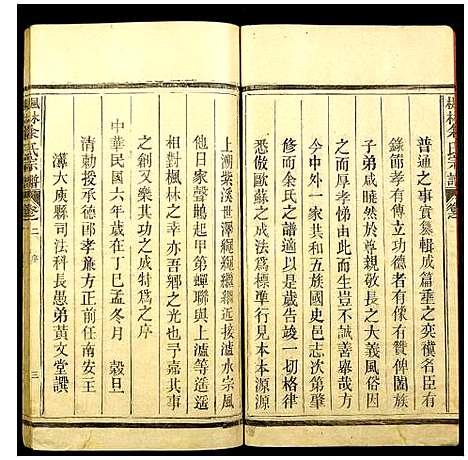 楓林余氏宗譜
普通之事實纂輯成篇垂之奕禩名臣有
錄節孝有傳例立功德者有贊俾闔族
子弟咸曉然於尊親敬長之大義風俗因
之日厚孝悌由此而生豈不誠美舉歟方
今中外一家共和五族國史邑志次第肇
興而余氏之譜適以是歲告竣一切格律
悉倣歐蘇之成法爲標準行見本本源源
上溯紫溪世澤綿綿繼繼近接瀘水宗風
他日家聲鵲起甲第蟬聯與上瀘等遥遥
相對楓林之幸亦吾鄉之光也予嘉其事
之創又樂其功之成特爲之序
中華民國六年歲在丁巳孟冬月 穀旦
清勅授承德郎孝亷方正前任南安王
溥大庾縣司法科長愚弟黃文堂譔
楓林余氏宗譜 卷之一 序 三